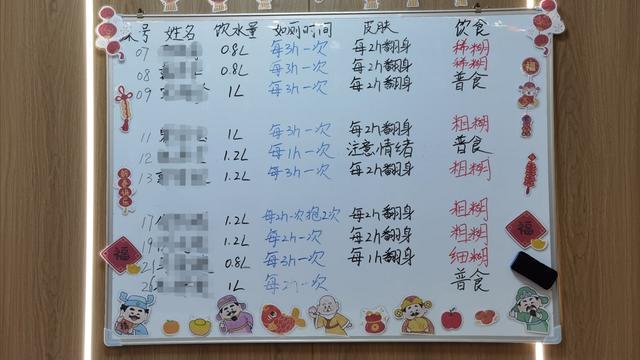 床号 姓名 饮水量 如厕时间 皮肤 饮食
07 0.8L 每3h一次 每2h翻身 稀糊
08 0.8L 每3h一次 每2h翻身 稀糊
09 1L 每3h一次 每2h翻身 普食
11 1L 每3h一次 每2h翻身 粗糊
12 1.2L 每1h一次 注意情绪 普食
13 1.2L 每3h一次 每2h翻身 粗糊
17 1.2L 每2h一次抱2次 每2h翻身 粗糊
19 1.2L 每2h一次 每2h翻身 粗糊
21 0.8L 每3h一次 每1h翻身 细糊
1L 每2h一次 普食
福
福
福